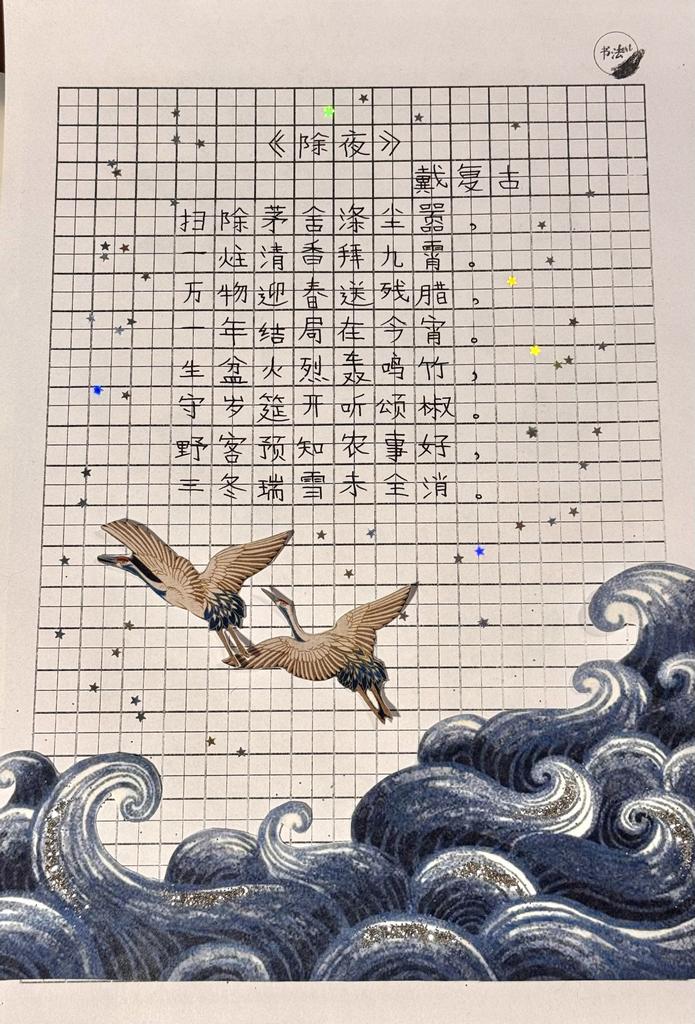 书法
《除夜》
戴复古
扫除茅舍涤尘嚣，
一炷清香拜九霄。
万物迎春送残腊，
一年结局在今宵。
生盆火烈轰鸣竹，
守岁筵开听颂椒。
野客预知农事好，
三冬瑞雪未全消。